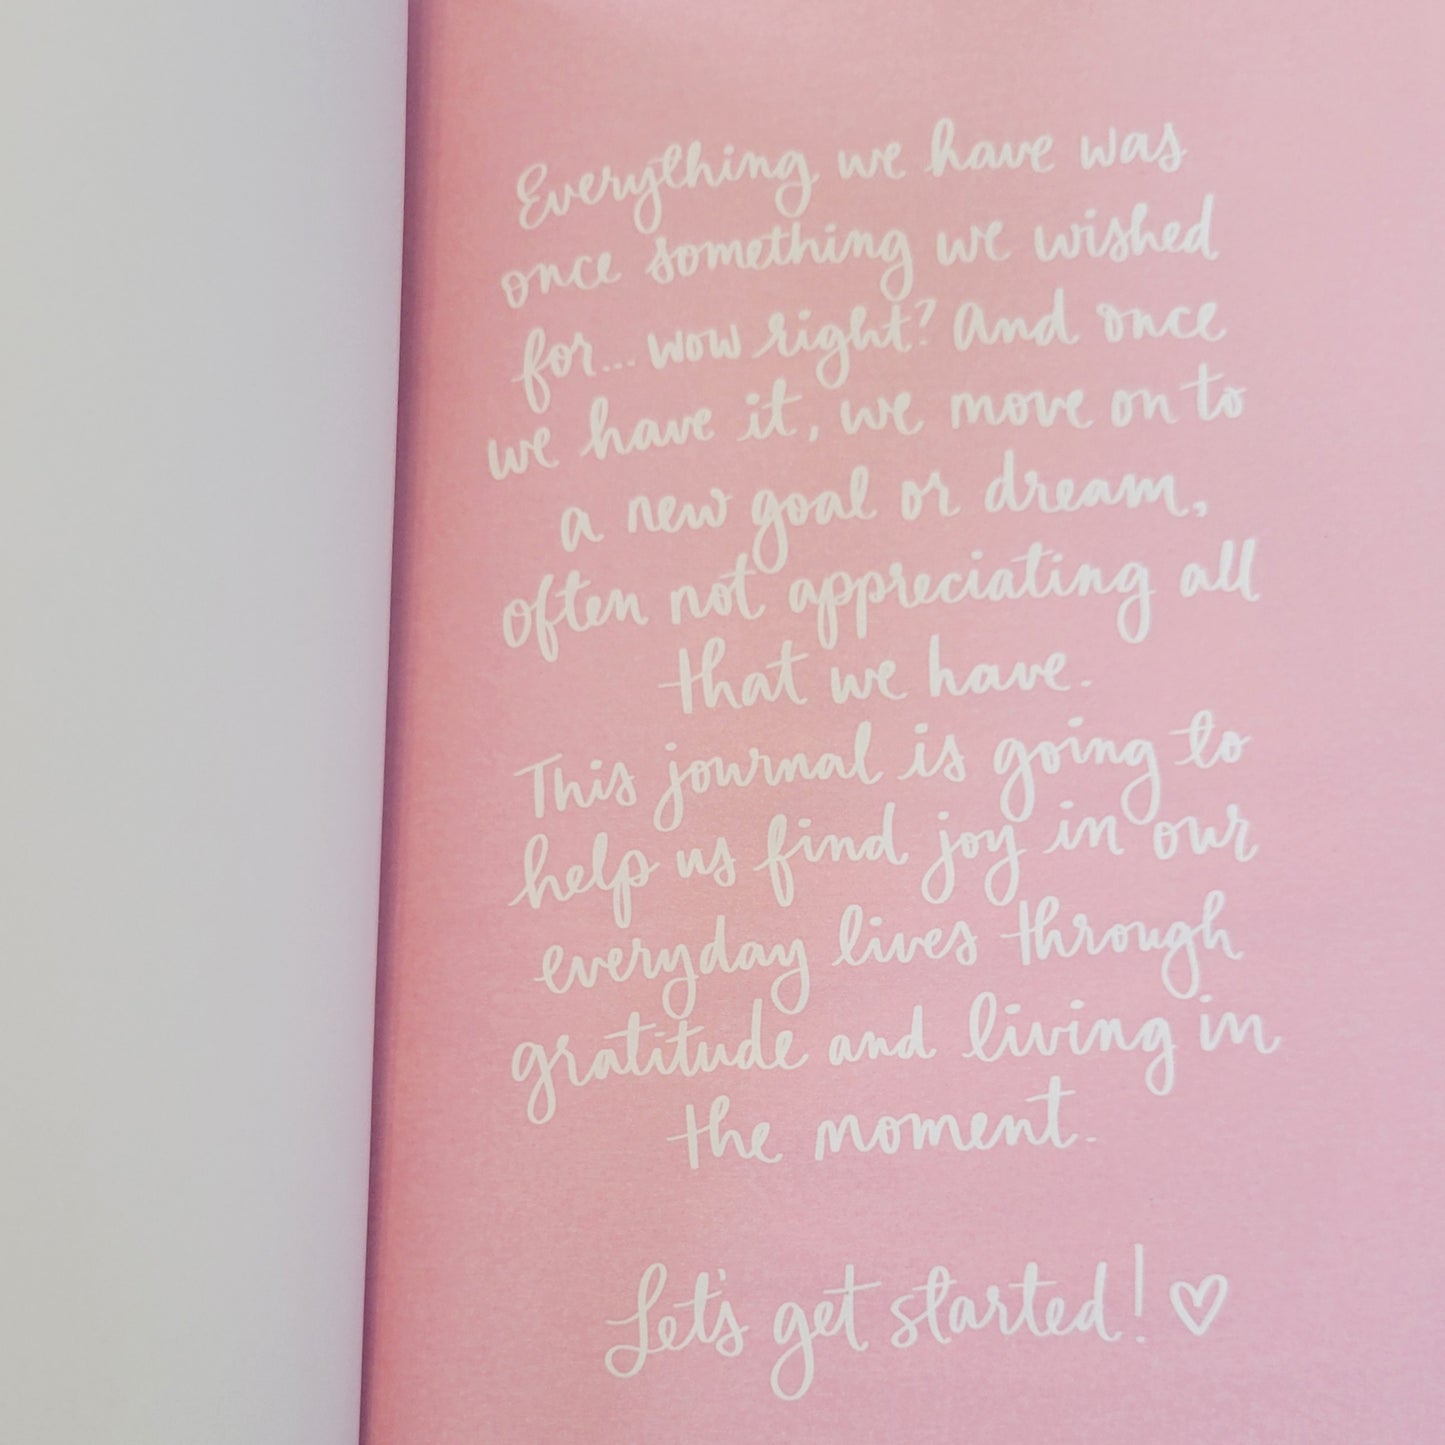 Everything we have was
once something we wished
for... wow right? And once
we have it, we move on to
a new goal or dream,
often not appreciating all
that we have.
This journal is going to
help us find joy in our
everyday lives through
gratitude and living in
the moment.
Let's get started! ♡